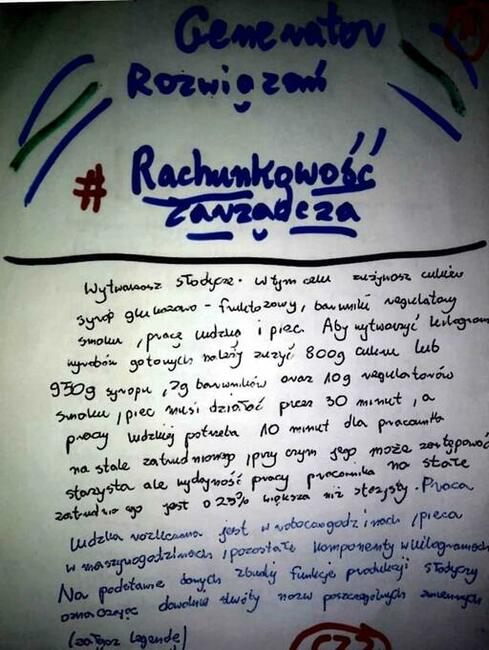 Generator
Rozwiązań
# Rachunkowość
Zarządcza
Wytwarzasz słodycze. W tym celu zużywasz cukier
syrop glukozowo-fruktozowy, barwniki regulatory
smaku, pracę ludzką i piec. Aby wytworzyć kilogram
wyrobów gotowych należy zużyć 800g cukru lub
950g syropu, 2g barwników oraz 10g regulatorów
smaku, piec musi działać przez 30 minut, a
pracy ludzkiej potrzeba 10 minut dla pracownika
na stałe zatrudnionego, przy czym jego może zastępować
stażysta ale wydajność pracy pracownika na stałe
zatrudnionego jest o 25% większa niż stażysty. Praca
ludzka rozliczana jest w roboczogodzinach, pieca
w maszynogodzinach, pozostałe komponenty w kilogramach
Na podstawie danych zbuduj funkcję produkcji słodyczy
oznaczając dowolnie skróty nazw poszczególnych zmiennych
(załącz legendę)